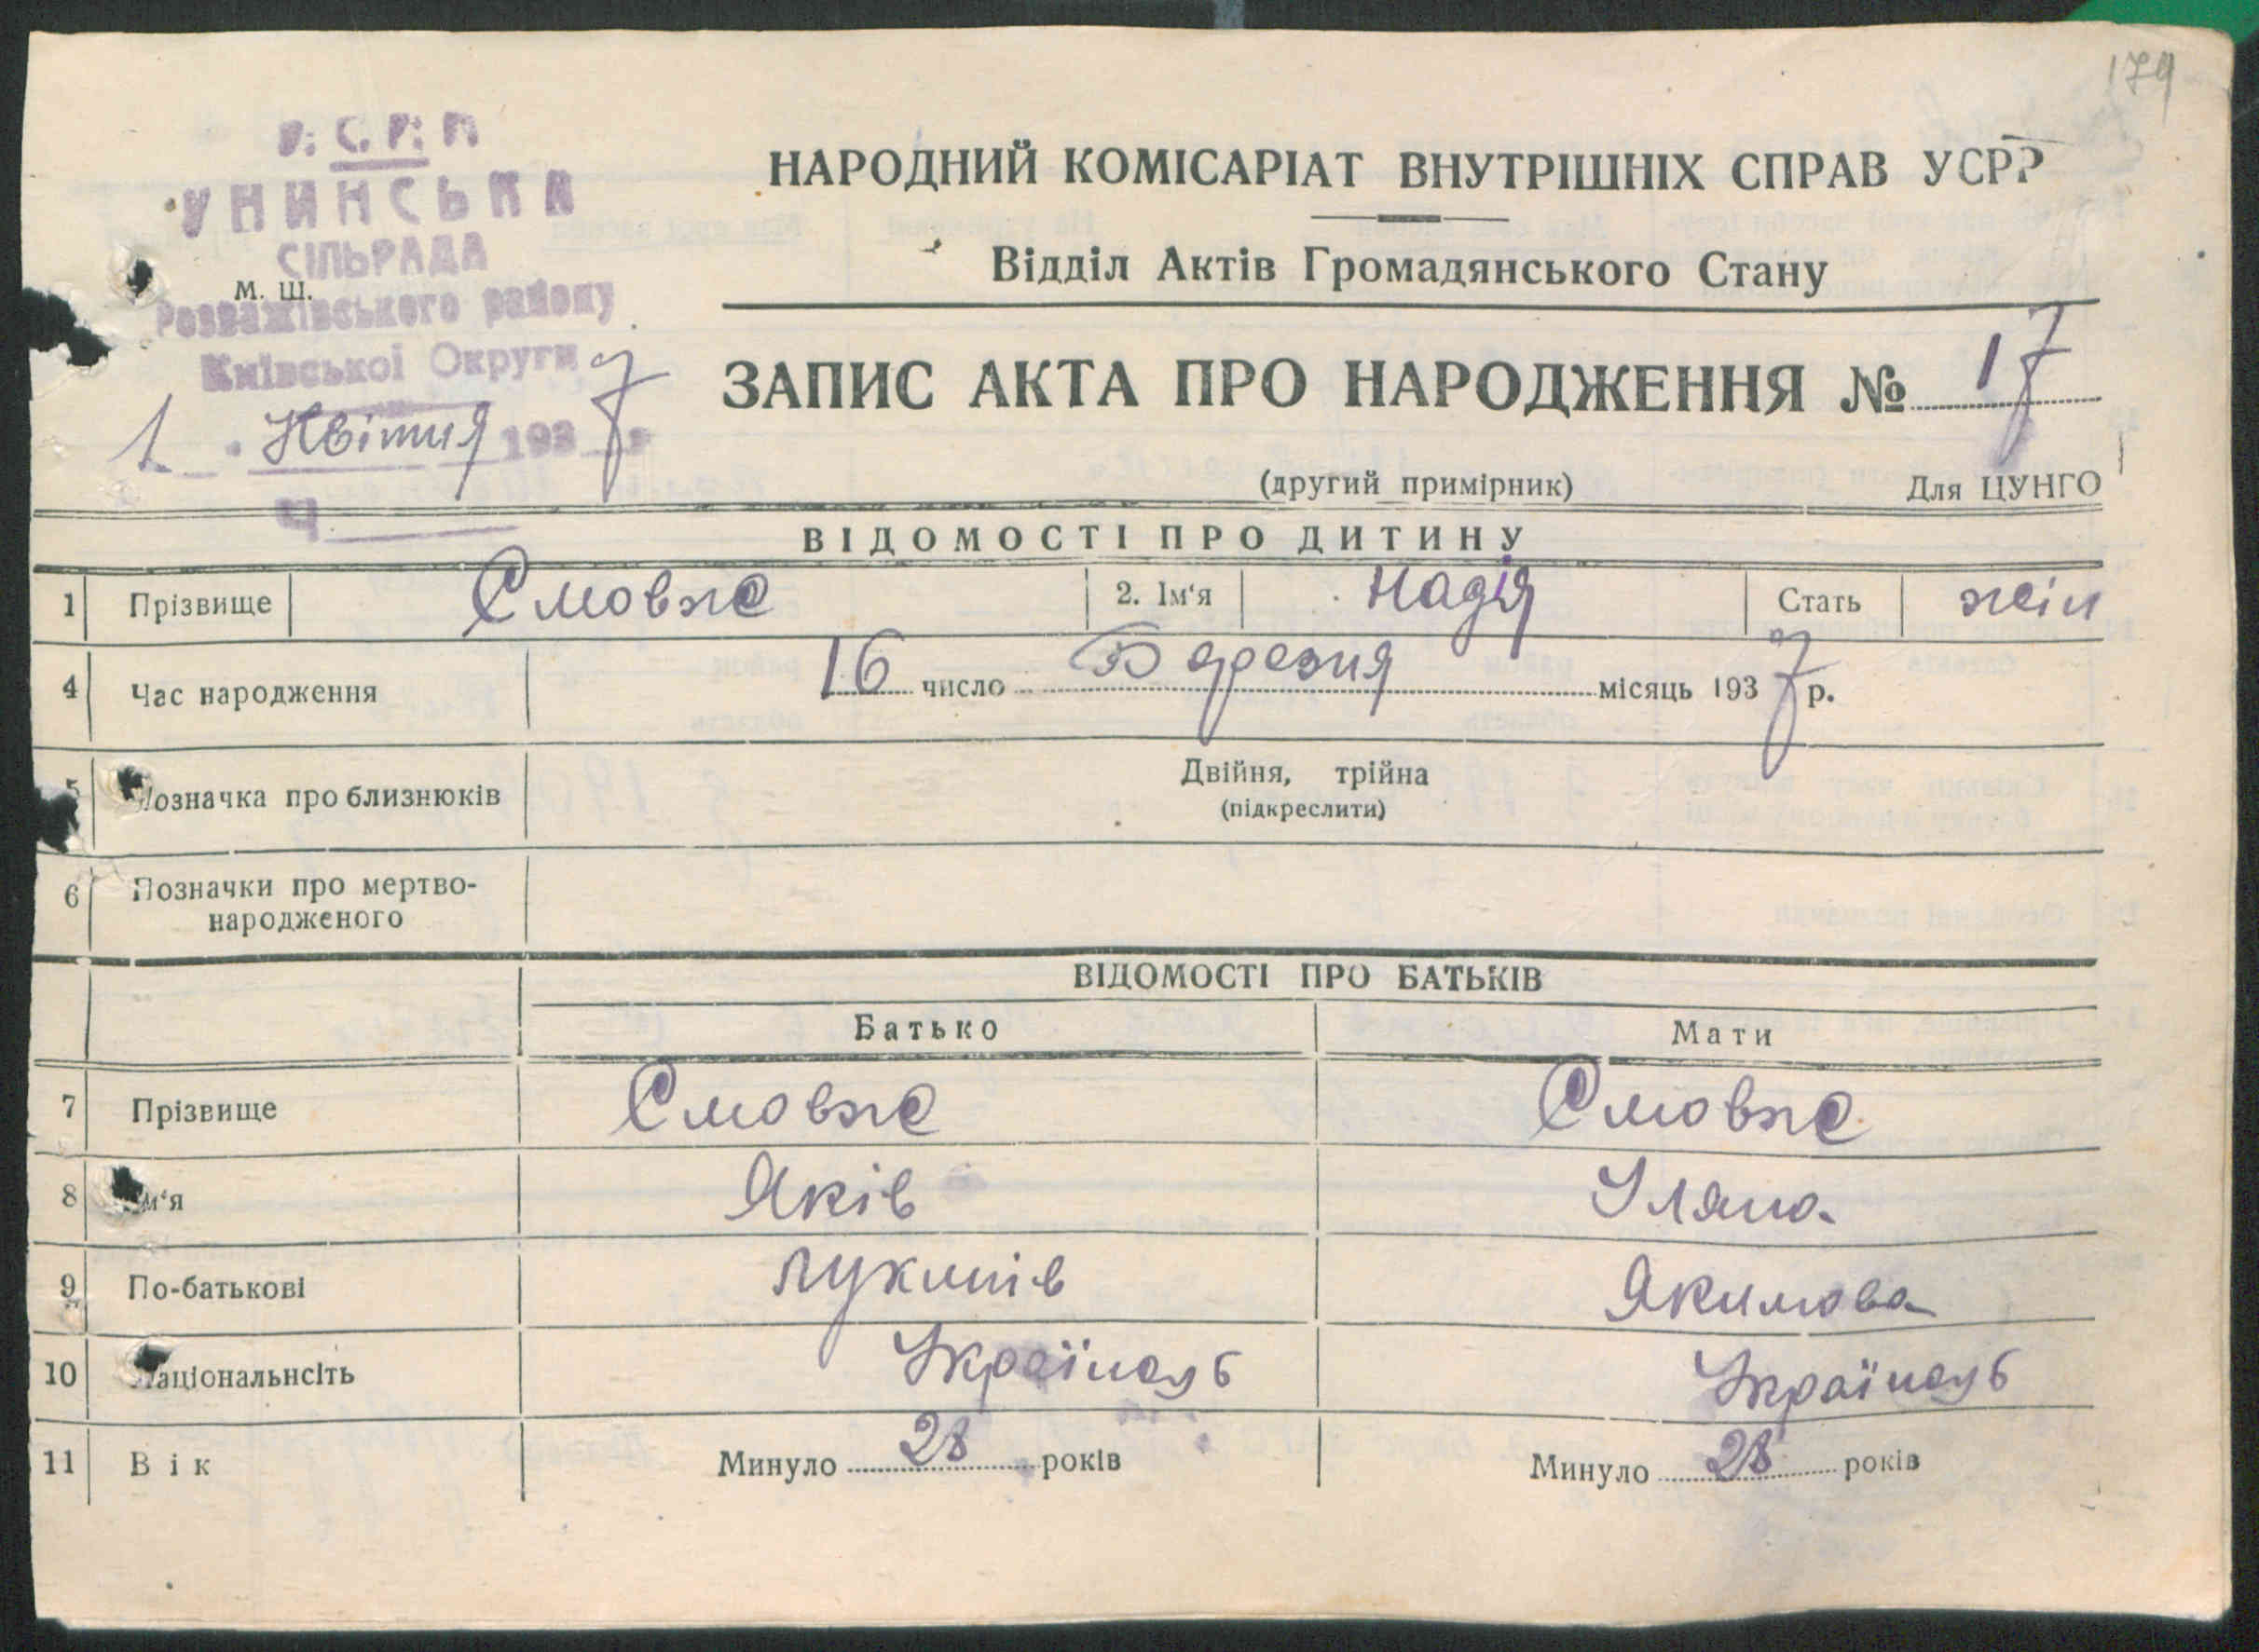 179
У. С. Р. Р.
УНИНСЬКА
СІЛЬРАДА
м. ш.
Розважівського району
Київської Округи
1 Квітня 1937 р
Ч
НАРОДНИЙ КОМІСАРІАТ ВНУТРІШНІХ СПРАВ УСРР
Відділ Актів Громадянського Стану
ЗАПИС АКТА ПРО НАРОДЖЕННЯ № 17
(другий примірник) Для ЦУНГО
ВІДОМОСТІ ПРО ДИТИНУ
1 Прізвище Смовже 2. Ім'я Надія Стать жін
4 Час народження 16 число Березня місяць 1937 р.
5 Позначка про близнюків Двійня, трійна
(підкреслити)
6 Позначки про мертво-
народженого
ВІДОМОСТІ ПРО БАТЬКІВ
Батько Мати
7 Прізвище Смовже Смовже
8 Ім'я Яків Уляна
9 По-батькові Лукшів Якимова
10 Національнсіть Українець Українець
11 Вік Минуло 28 років Минуло 28 років